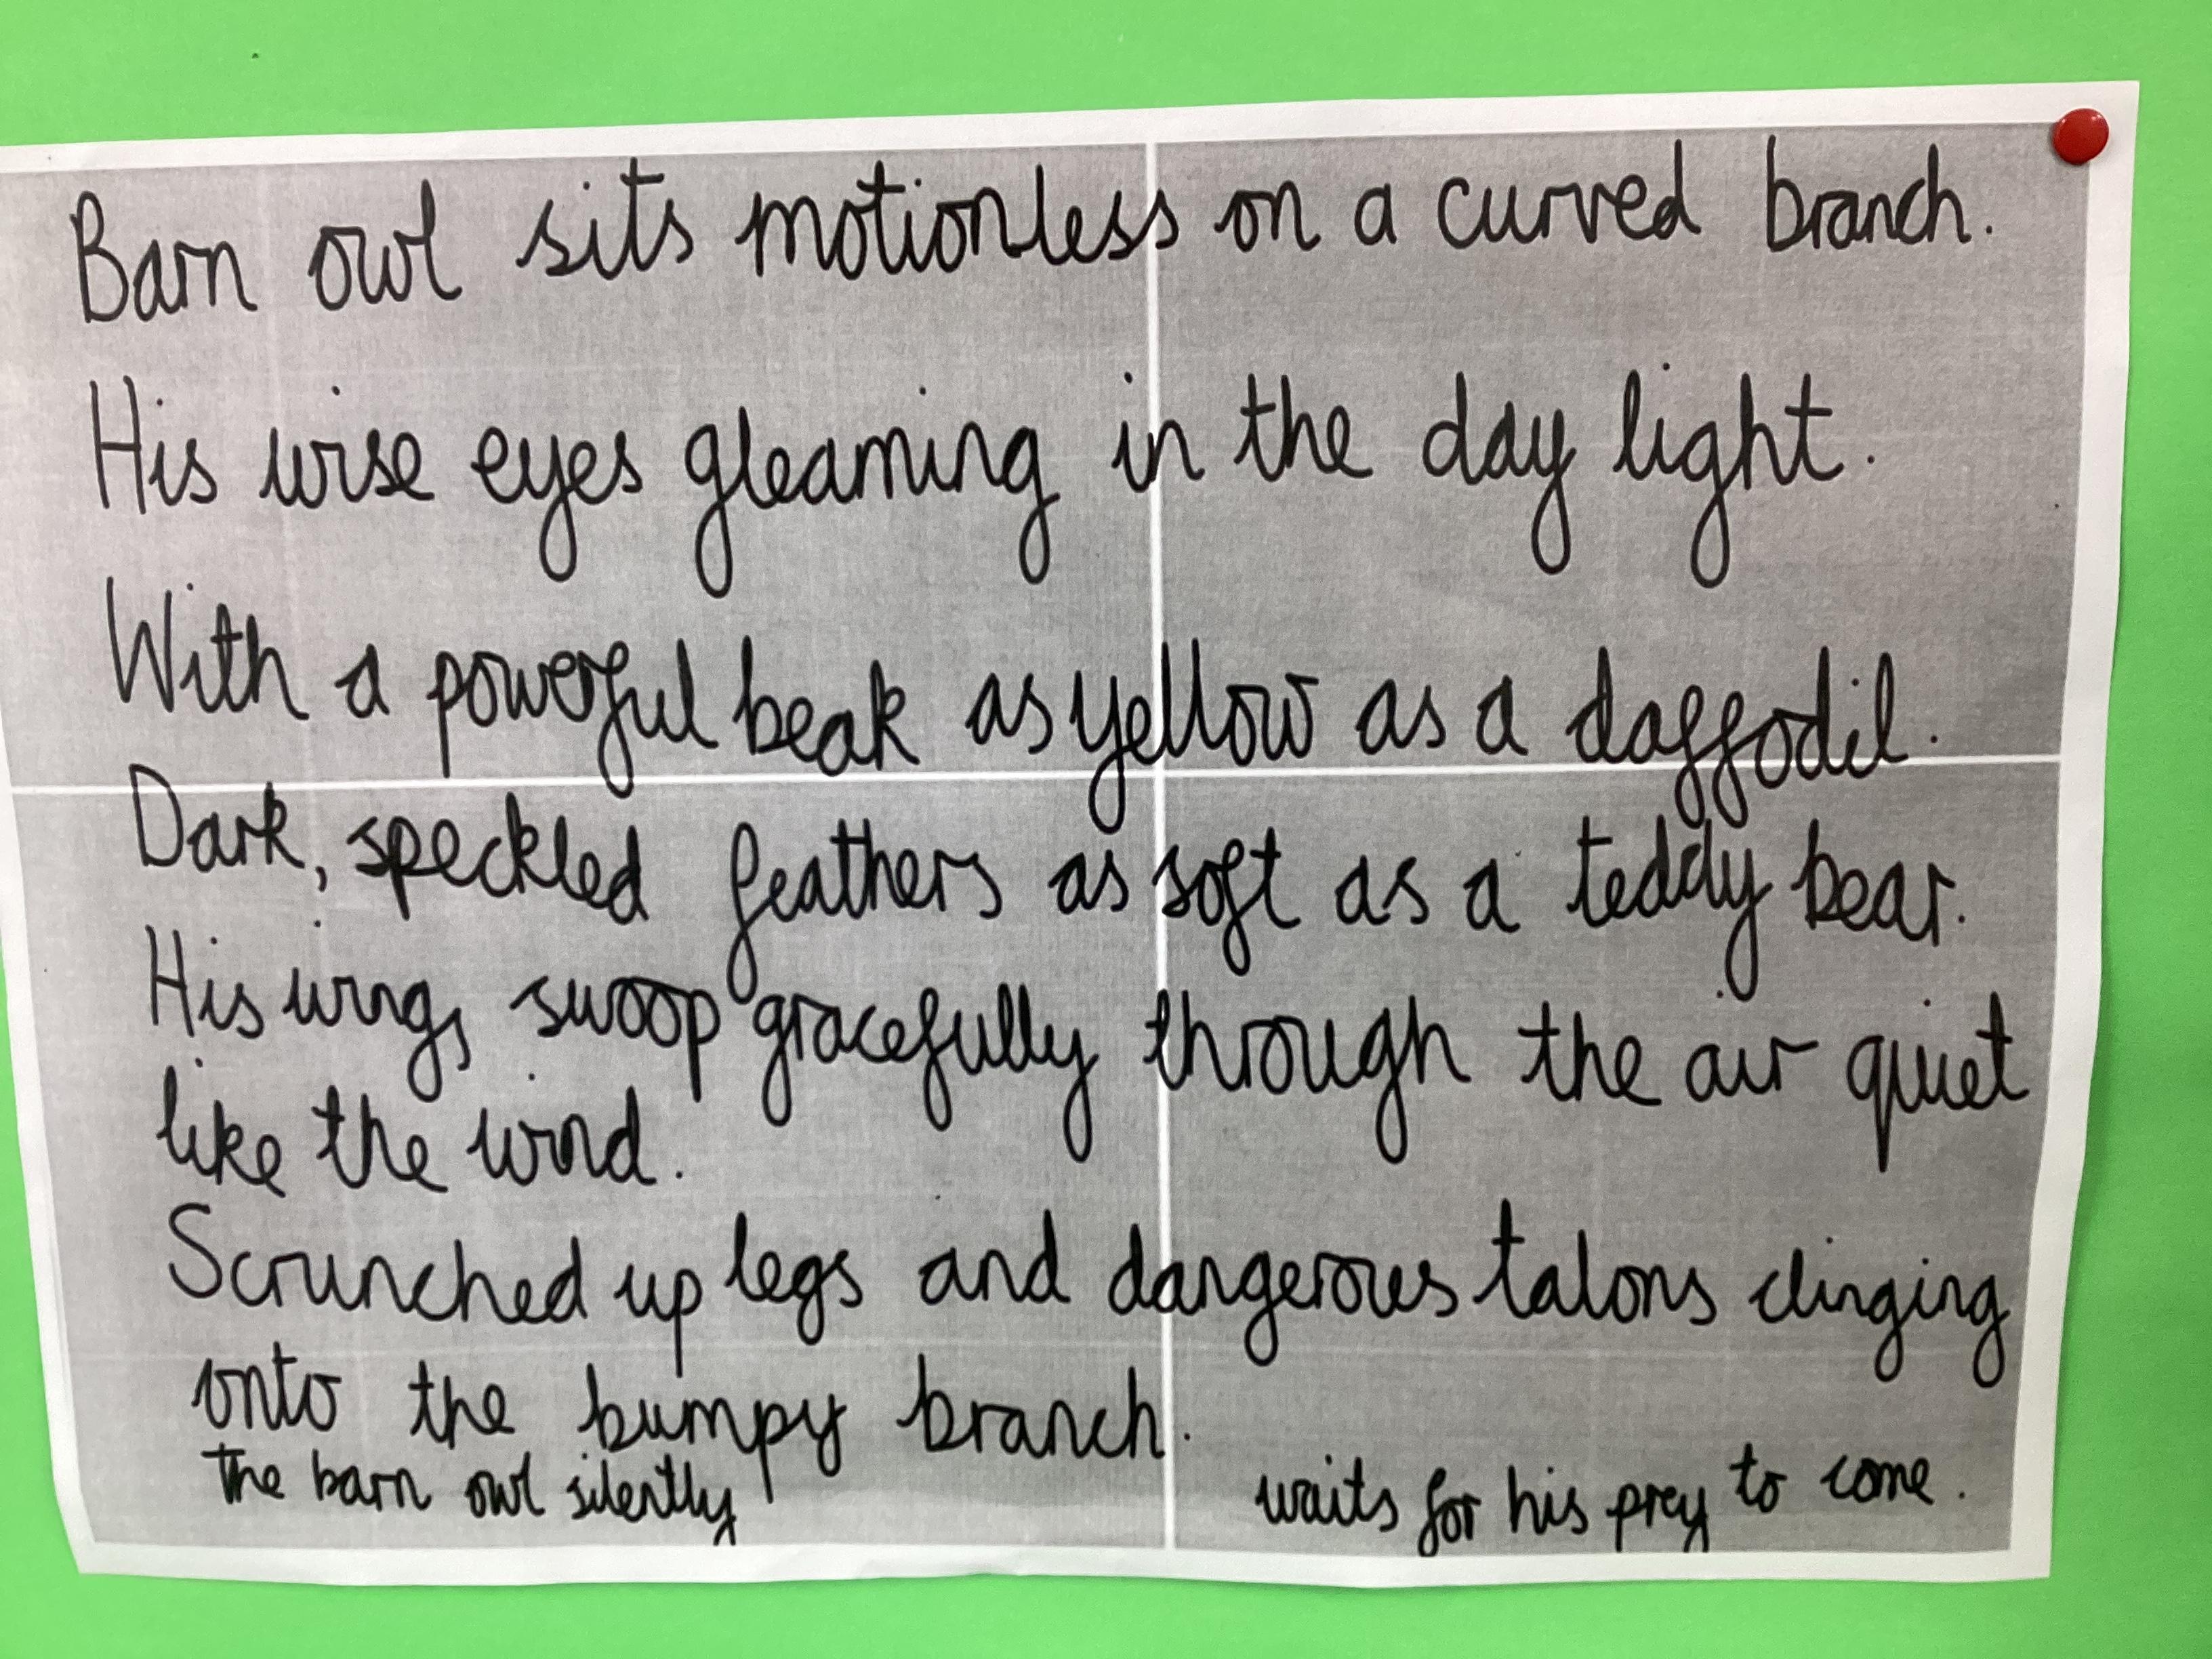 Barn owl sits motionless on a curved branch.
His wise eyes gleaming in the day light.
With a powerful beak as yellow as a daffodil.
Dark, speckled feathers as soft as a teddy bear.
His wings swoop gracefully through the air quiet
like the wind.
Scrunched up legs and dangerous talons clinging
onto the bumpy branch.
The barn owl silently waits for his prey to come.